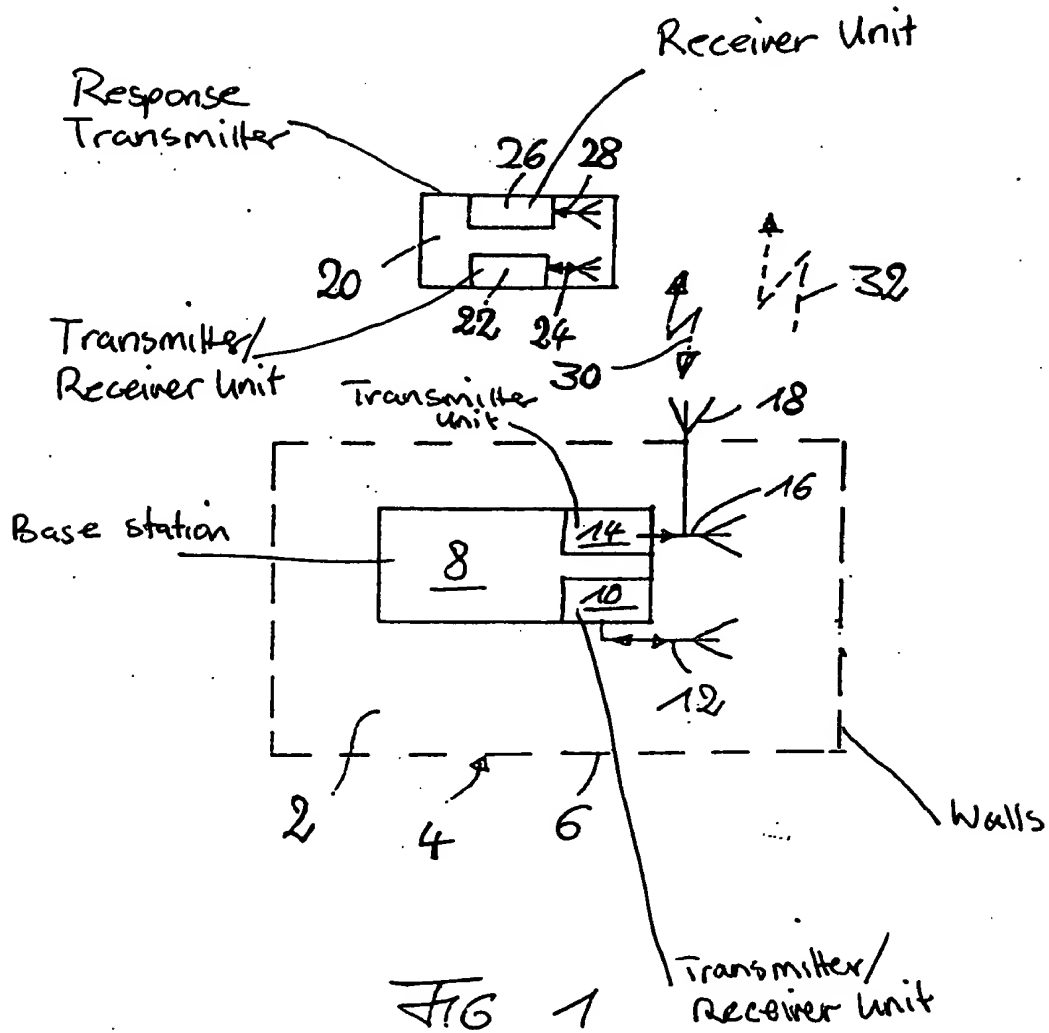 Receiver Unit
Response
Transmitter
26
28
20
32
22
24
Transmitter/
Receiver Unit
30
Transmitter
Unit
18
16
Base station
14
8
10
12
2
4
6
Walls
Transmitter/
Receiver Unit
FIG 1